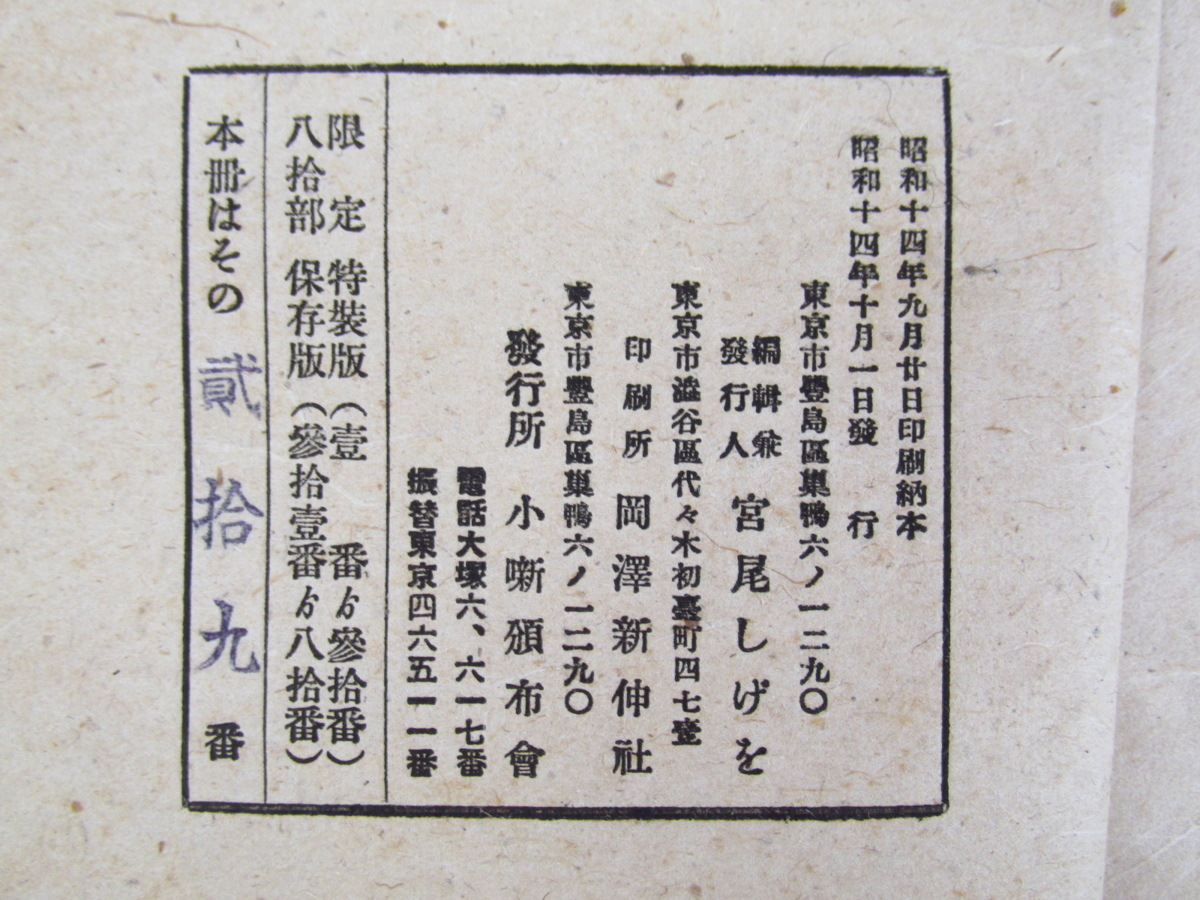 昭和十四年九月廿日印刷納本
昭和十四年十月一日發行
東京市豐島區巢鴨六ノ一二九〇
編輯兼
發行人 宮尾しげを
東京市澁谷區代々木初臺町四七壹
印刷所 岡澤新伸社
東京市豐島區巢鴨六ノ一二九〇
發行所 小噺頒布會
電話大塚六、六一七番
振替東京四六五一一番
限定 特裝版(壹番ゟ參拾番)
八拾部 保存版(參拾壹番ゟ八拾番)
本冊はその 貳拾九 番